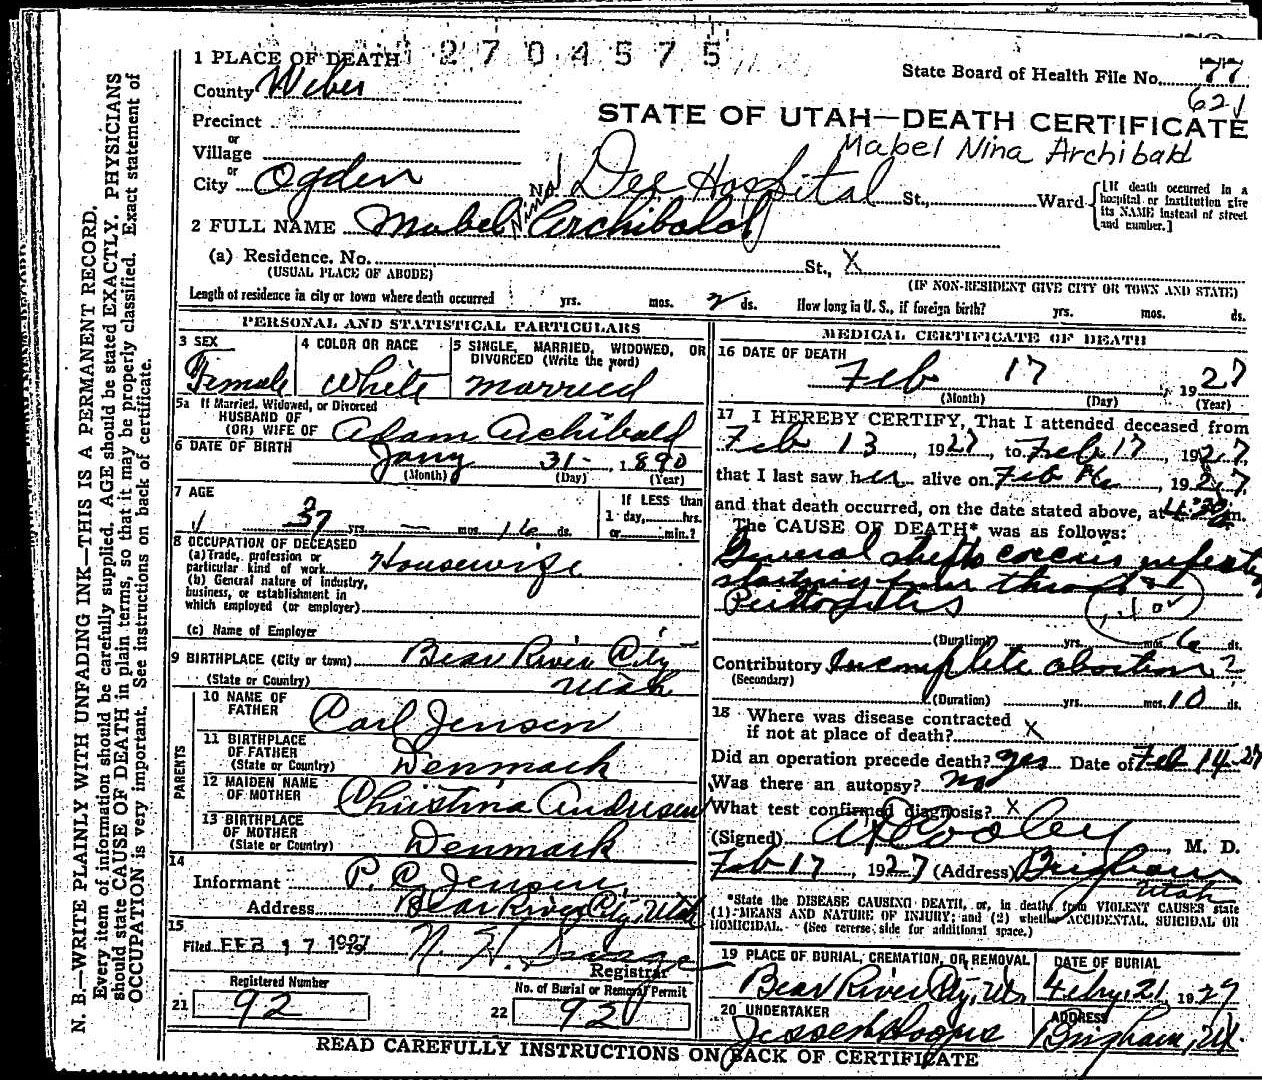 2704575
1 PLACE OF DEATH
State Board of Health File No. 77
County Weber
621
STATE OF UTAH—DEATH CERTIFICATE
Precinct
or
Village
Mabel Nina Archibald
or
City Ogden No. Dee Hospital St., Ward [If death occurred in a hospital or institution give its NAME instead of street and number.]
2 FULL NAME Mabel Nina Archibald
(a) Residence. No. St., X
(USUAL PLACE OF ABODE) (IF NON-RESIDENT GIVE CITY OR TOWN AND STATE)
Length of residence in city or town where death occurred yrs. mos. 2 ds. How long in U. S., if foreign birth? yrs. mos. ds.
PERSONAL AND STATISTICAL PARTICULARS
3 SEX
Female
4 COLOR OR RACE
White
5 SINGLE, MARRIED, WIDOWED, OR DIVORCED (Write the word)
Married
5a If Married, Widowed, or Divorced
HUSBAND OF
(OR) WIFE OF Adam Archibald
6 DATE OF BIRTH Jany 31- 1890
(Month) (Day) (Year)
7 AGE
37 yrs. — mos. 16 ds.
If LESS than
1 day, hrs.
or min.?
8 OCCUPATION OF DECEASED
(a) Trade, profession or
particular kind of work Housewife
(b) General nature of industry,
business, or establishment in
which employed (or employer)
(c) Name of Employer
9 BIRTHPLACE (City or town) Bear River City
(State or Country) Utah
PARENTS
10 NAME OF
FATHER Carl Jensen
11 BIRTHPLACE
OF FATHER
(State or Country) Denmark
12 MAIDEN NAME
OF MOTHER Christina Andersen
13 BIRTHPLACE
OF MOTHER
(State or Country) Denmark
14
Informant P. C. Jensen
Address Bear River City, Utah
15
Filed FEB 17 1927 N. H. Savage
Registrar
Registered Number
21 92
No. of Burial or Removal Permit
22 92
MEDICAL CERTIFICATE OF DEATH
16 DATE OF DEATH
Feb 17, 1927
(Month) (Day) (Year)
17 I HEREBY CERTIFY, That I attended deceased from
Feb 13, 1927, to Feb 17, 1927,
that I last saw her alive on Feb 16, 1927,
and that death occurred, on the date stated above, at m.
The CAUSE OF DEATH* was as follows:
General infection
throat
Peritonitis
(Duration) yrs. mos. 6 ds.
Contributory Incomplete abortion?
(Secondary)
(Duration) yrs. mos. 10 ds.
18 Where was disease contracted
if not at place of death? X
Did an operation precede death? yes Date of Feb 14-27
Was there an autopsy? no
What test confirmed diagnosis? X
(Signed) Cooley, M. D.
Feb 17, 1927 (Address) Brigham
Utah
*State the DISEASE CAUSING DEATH, or, in deaths from VIOLENT CAUSES state
(1) MEANS AND NATURE OF INJURY; and (2) whether ACCIDENTAL, SUICIDAL OR
HOMICIDAL. (See reverse side for additional space.)
19 PLACE OF BURIAL, CREMATION, OR REMOVAL
Bear River City, Ut.
DATE OF BURIAL
Febry. 21, 1927
20 UNDERTAKER
ADDRESS
Brigham, Ut.
READ CAREFULLY INSTRUCTIONS ON BACK OF CERTIFICATE
N. B.—WRITE PLAINLY WITH UNFADING INK—THIS IS A PERMANENT RECORD.
Every item of information should be carefully supplied. AGE should be stated EXACTLY. PHYSICIANS
should state CAUSE OF DEATH in plain terms, so that it may be properly classified. Exact statement of
OCCUPATION is very important. See instructions on back of certificate.